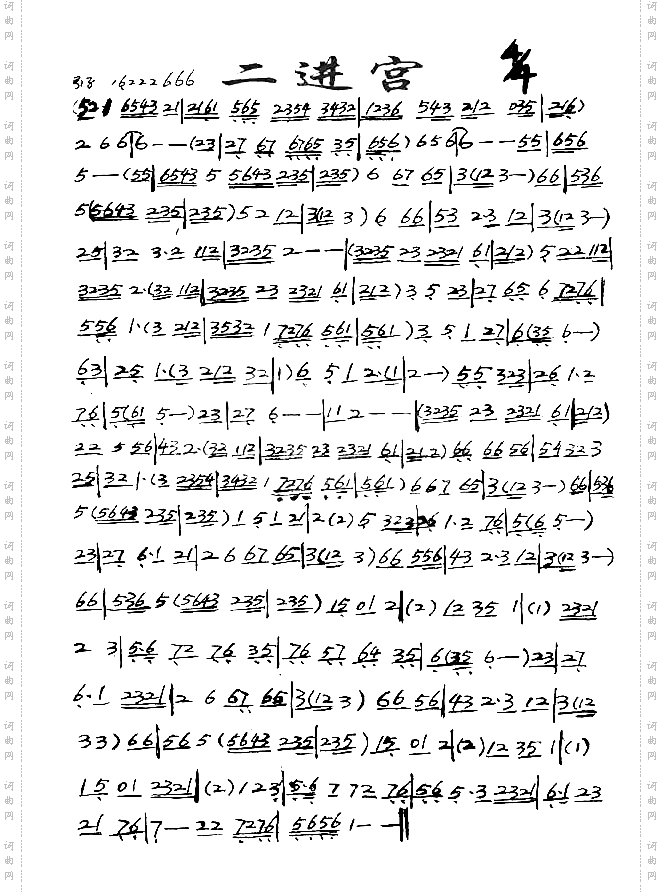 二进宫 4/4
(52 | 6543 21 | 2161 565 2354 3432 | 1236 543 212 035 | 216)
2 6 6 | 6 - - (23 | 27 67 6765 35 | 656) 656 | 6 - - 55 | 656
5 - (55 | 6543 5 5643 235 | 235) 6 67 65 | 3(12 3-) 66 | 536
5(5643 235 | 235) 52 12 | 3(12 3) 6 66 | 53 2·3 12 | 3(12 3-)
25 | 32 3·2 112 | 3235 2 - - | (3235 23 2321 61 | 212) 5 22 112 |
3235 2·(32 112 | 3235 23 2321 61 | 212) 3 5 23 | 27 65 6 7276 |
556 1·(3 212 | 3532 1 7276 561 | 561) 3 5 1 27 | 6(35 6-)
63 | 25 1·(3 212 32 | 1) 6 5 1 2·(1 | 2-) 55 323 | 26 1·2
76 | 5(61 5-) 23 | 27 6 - - | 11 2 - - | (3235 23 2321 61 | 212)
22 5 56 | 432·(32 112 | 3235 23 2321 61 | 212) 66 66 56 | 54 32 3
25 | 32 1·(3 2354 | 3432 1 7276 561 | 561) 6 67 65 | 3(12 3-) 66 | 536
5(5643 235 | 235) 1 5 1 21 | 2(2) 5 323 | 26 1·2 76 | 5(6 5-)
23 | 27 6·1 21 | 2 6 67 65 | 3(12 3) 66 556 | 43 2·3 12 | 3(12 3-)
66 | 536 5(5643 235 | 235) 15 01 2 | (2) 12 35 1 | (1) 2321
2 3 | 5·6 72 76 35 | 76 57 64 35 | 6(35 6-) 23 | 27
6·1 2321 | 2 6 67 65 | 3(12 3) 66 56 | 43 2·3 12 | 3(12
33) 66 | 565 (5643 235 | 235) 15 01 2 | (2) 12 35 1 | (1)
15 01 2321 | (2) 123 | 5·6 7 72 76 | 56 5·3 2321 | 6·1 23
21 76 | 7 - 22 7276 | 5656 1 - - ‖
词曲网